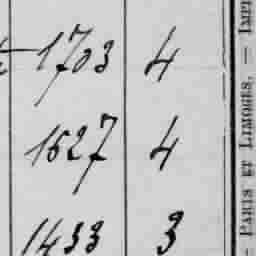 1703 4
1527 4
1433 3
— PARIS ET LIMOGES, — IMP